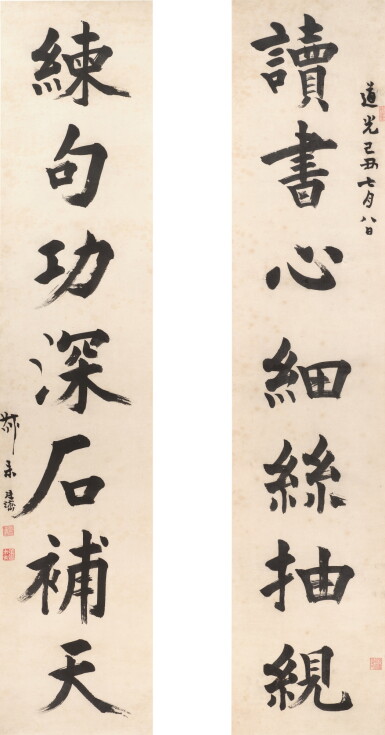 道光己丑七月八日
讀書心細絲抽絸
練句功深石補天
叔未廷濟